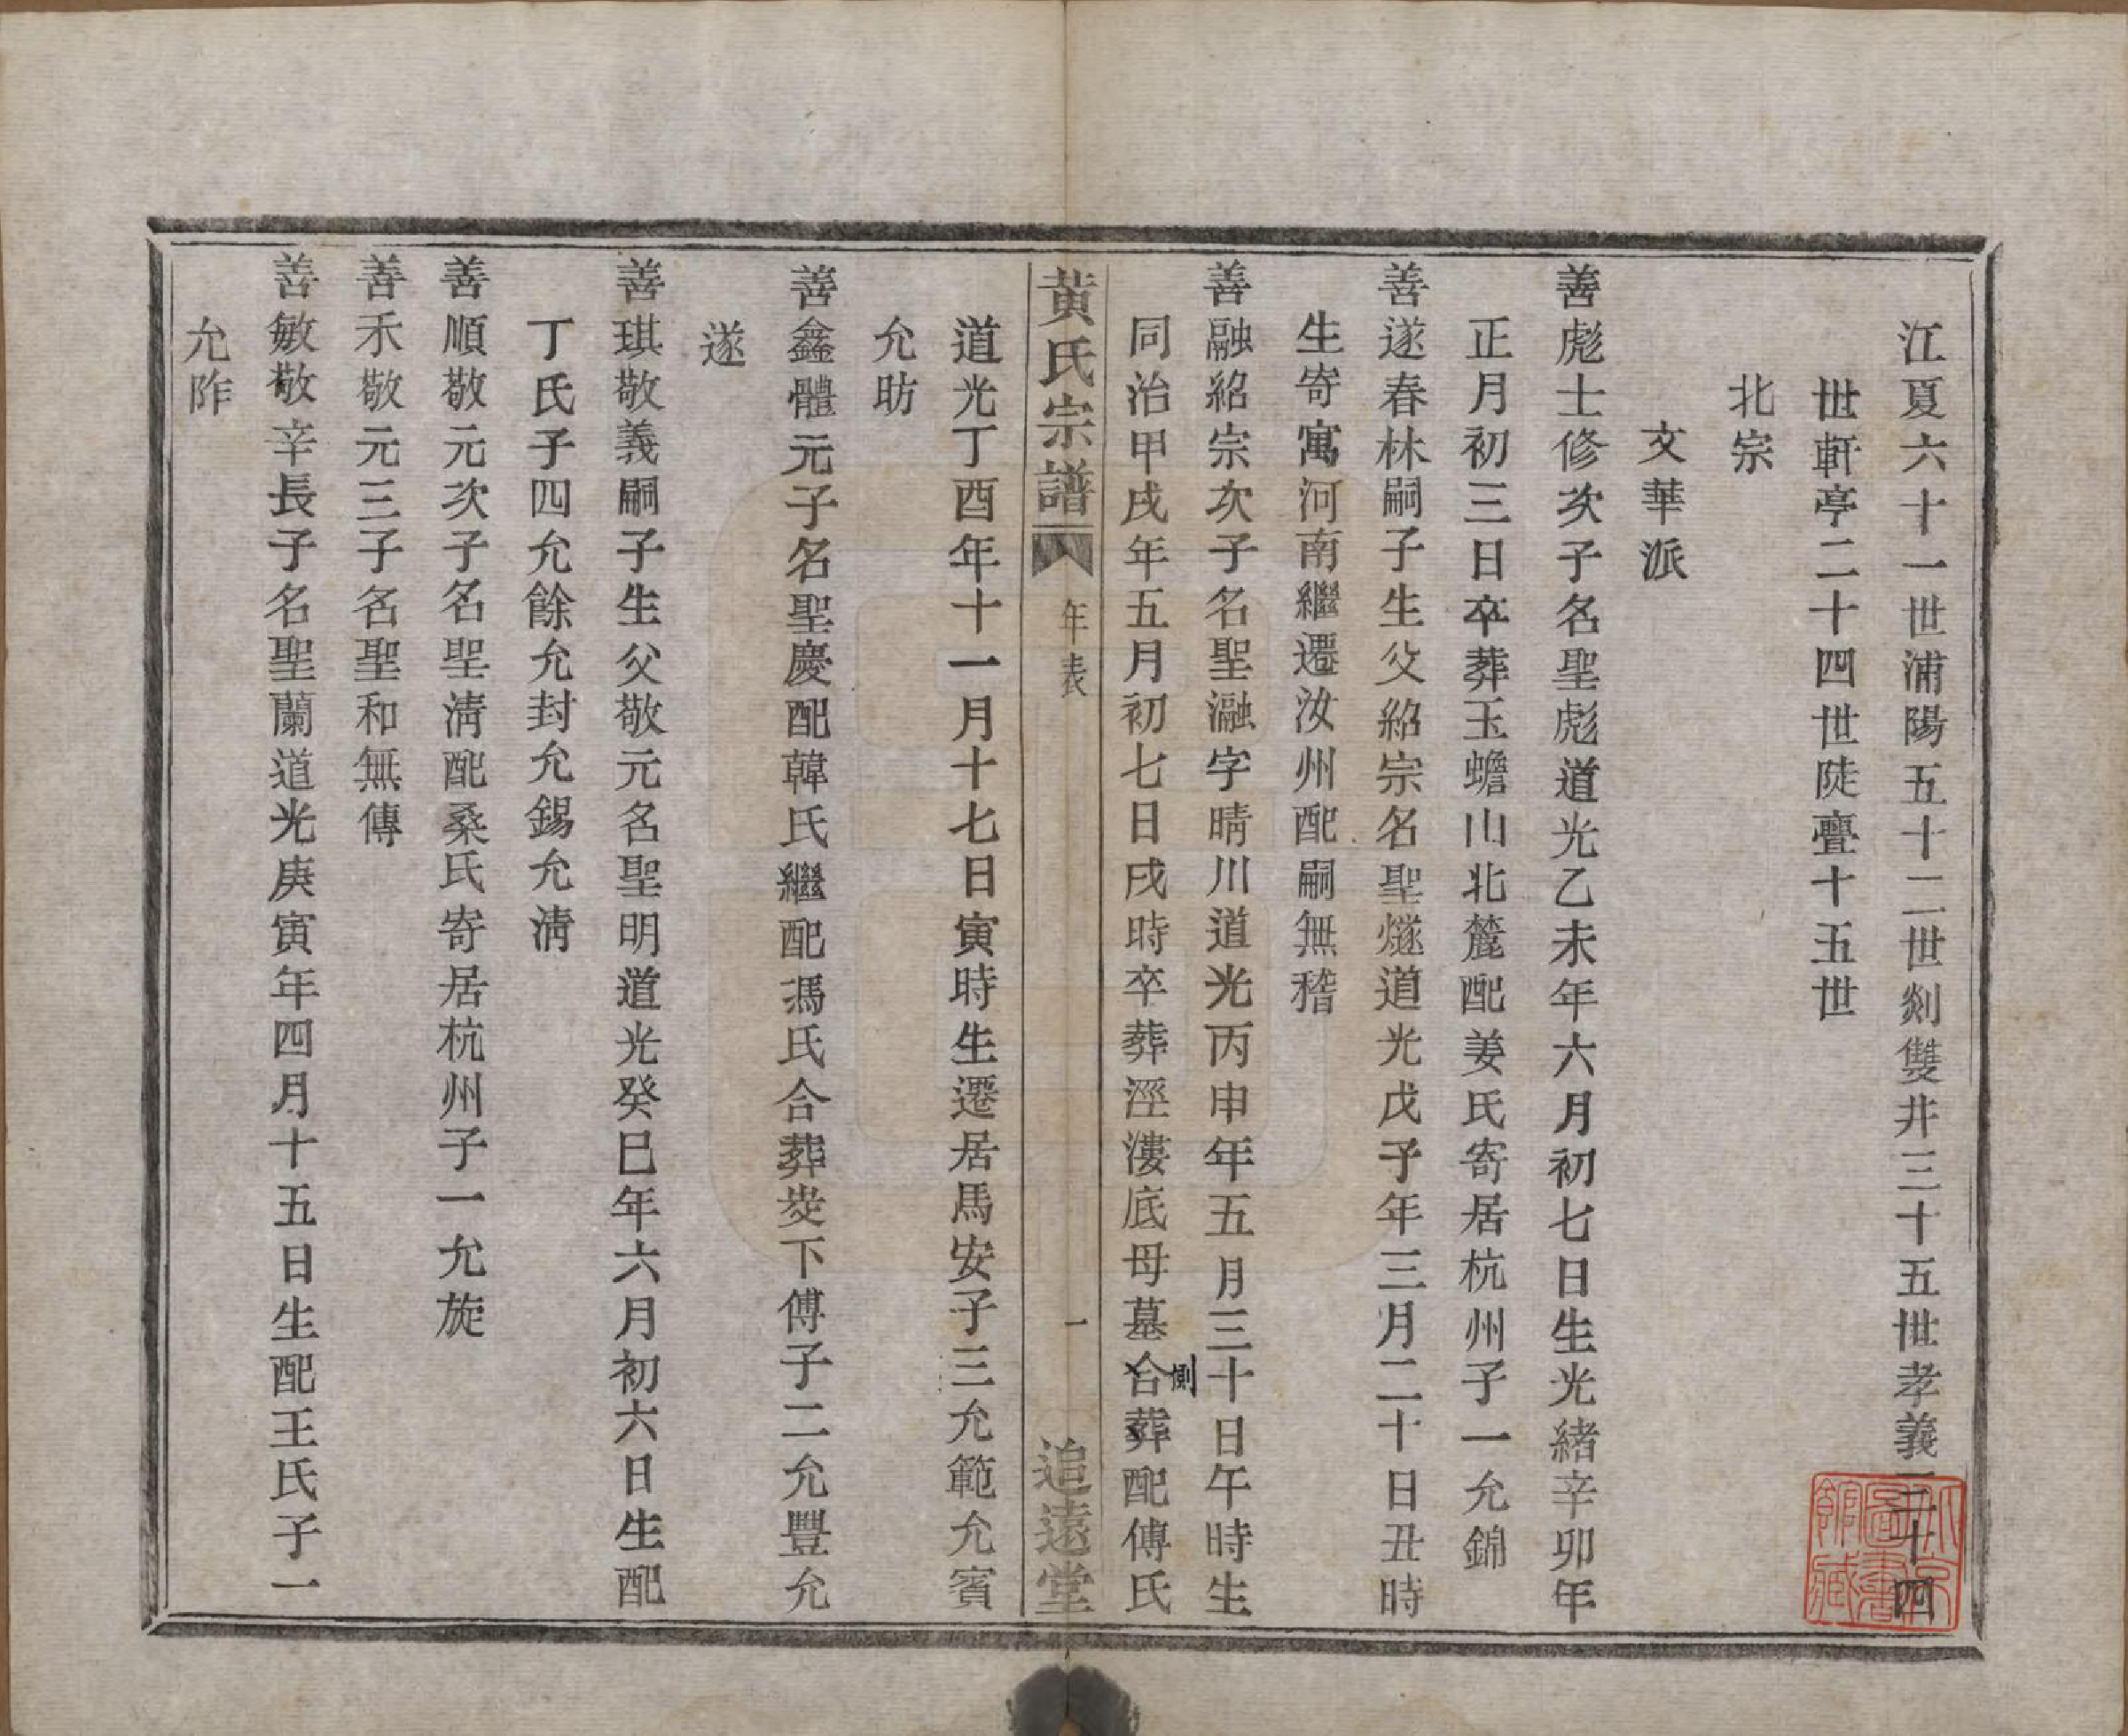 江夏六十一世浦陽五十二世剡雙井三十五世孝義二十四
世軒亭二十四世陡亹十五世
北宗
文華派
善彪士修次子名聖彪道光乙未年六月初七日生光緒辛卯年
正月初三日卒葬玉蟾山北麓配姜氏寄居杭州子一允錦
善遂春林嗣子生父紹宗名聖燧道光戊子年三月二十日丑時
生寄寓河南繼遷汝州配嗣無稽
善融紹宗次子名聖瀜字晴川道光丙申年五月三十日午時生
同治甲戌年五月初七日戌時卒葬涇漊底母墓合葬配傅氏
側
黃氏宗譜 年表 一 追遠堂
道光丁酉年十一月十七日寅時生遷居馬安子三允範允賓
允昉
善鑫體元子名聖慶配韓氏繼配馮氏合葬塋下傅子二允豐允
遂
善琪敬義嗣子生父敬元名聖明道光癸巳年六月初六日生配
丁氏子四允餘允封允錫允淸
善順敬元次子名聖淸配桑氏寄居杭州子一允旋
善禾敬元三子名聖和無傳
善敏敬辛長子名聖蘭道光庚寅年四月十五日生配王氏子一
允阼